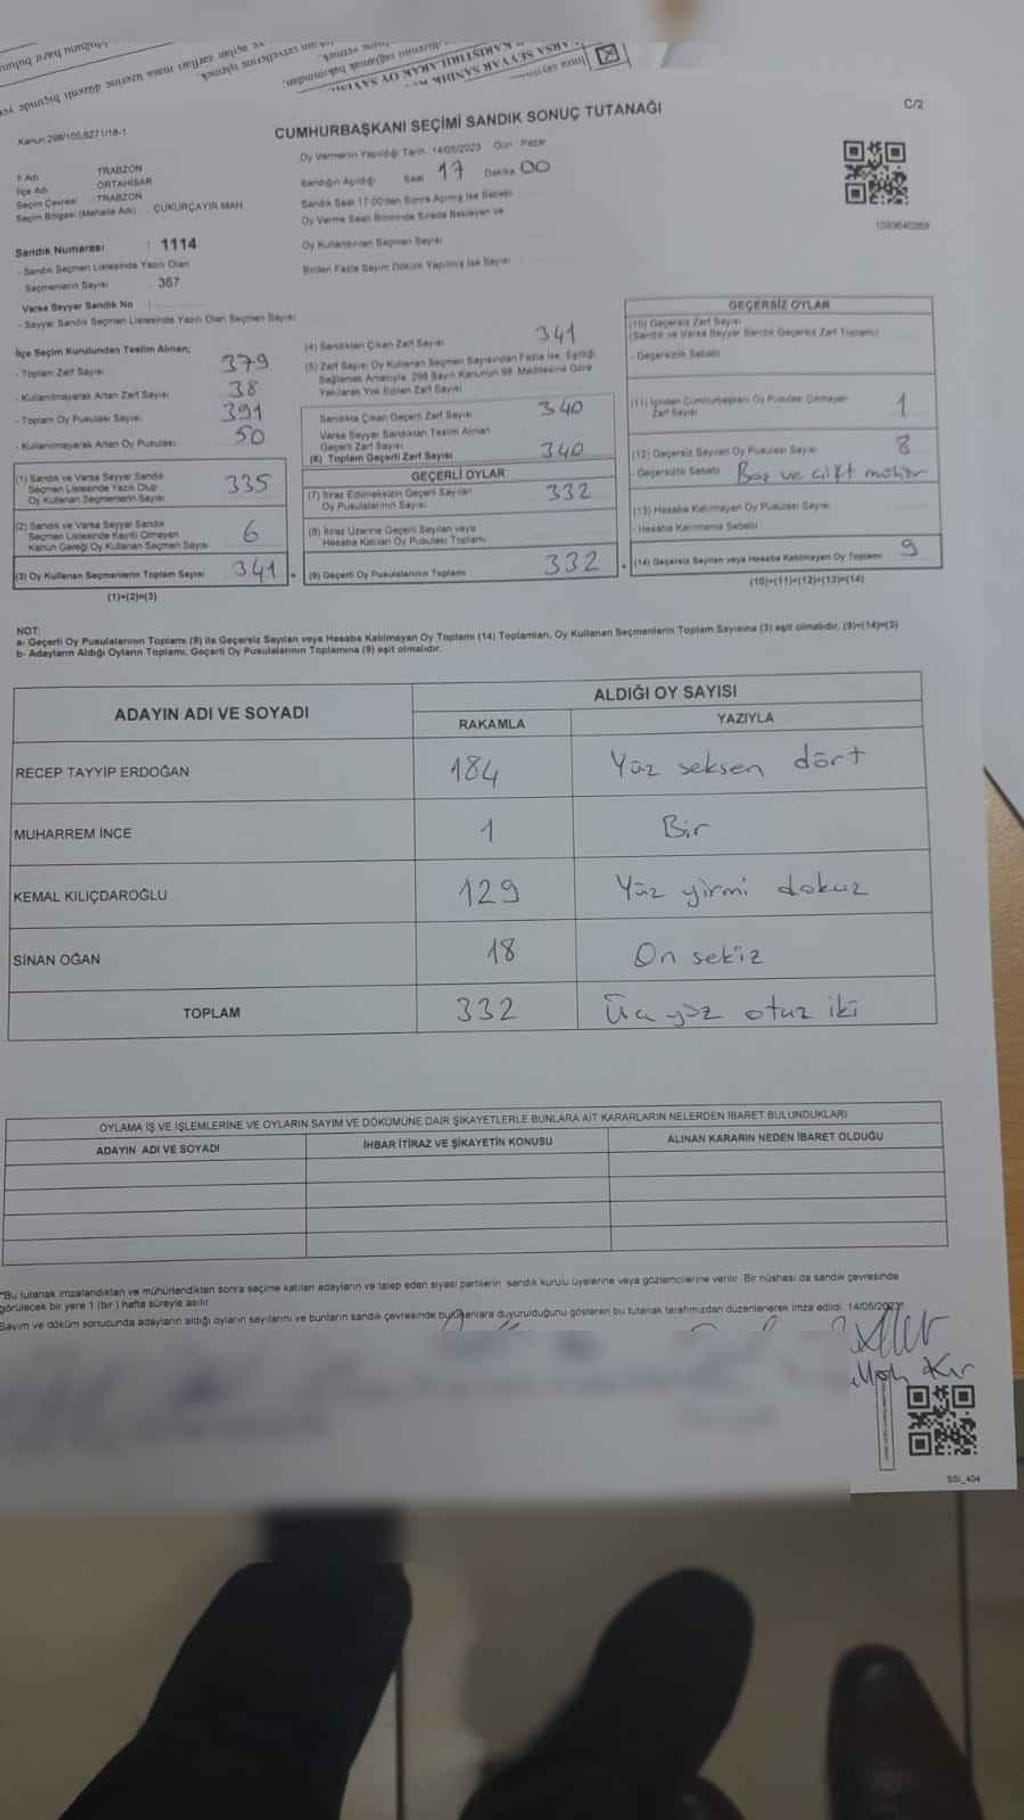 C/2
Kanun:298/105,6271/18-1
CUMHURBAŞKANI SEÇİMİ SANDIK SONUÇ TUTANAĞI
Oy Vermenin Yapıldığı Tarih 14/05/2023 Gün Pazar
Sandığın Açıldığı Saat 17 Dakika 00
Sandık Saat 17.00'den Sonra Açılmış İse Sebebi
Oy Verme Saati Bitiminde Sırada Bekleyen ve
Oy Kullandırılan Seçmen Sayısı
Birden Fazla Sayım Döküm Yapılmış İse Sayısı
İl Adı TRABZON
İlçe Adı ORTAHİSAR
Seçim Çevresi : TRABZON
Seçim Bölgesi (Mahalle Adı) : ÇUKURÇAYIR MAH.
Sandık Numarası : 1114
- Sandık Seçmen Listesinde Yazılı Olan
Seçmenlerin Sayısı : 367
Varsa Seyyar Sandık No
- Seyyar Sandık Seçmen Listesinde Yazılı Olan Seçmen Sayısı
İlçe Seçim Kurulundan Teslim Alınan;
- Toplam Zarf Sayısı 379
- Kullanılmayarak Artan Zarf Sayısı 38
- Toplam Oy Pusulası Sayısı 391
- Kullanılmayarak Artan Oy Pusulası 50
(1) Sandık ve Varsa Seyyar Sandık
Seçmen Listesinde Yazılı Olup
Oy Kullanan Seçmenlerin Sayısı 335
(2) Sandık ve Varsa Seyyar Sandık
Seçmen Listesinde Kayıtlı Olmayan
Kanun Gereği Oy Kullanan Seçmen Sayısı 6
(3) Oy Kullanan Seçmenlerin Toplam Sayısı 341
(1)+(2)=(3)
(4) Sandıktan Çıkan Zarf Sayısı 341
(5) Zarf Sayısı Oy Kullanan Seçmen Sayısından Fazla İse, Eşitliği
Sağlamak Amacıyla, 298 Sayılı Kanunun 98. Maddesine Göre
Yakılarak Yok Edilen Zarf Sayısı
Sandıkta Çıkan Geçerli Zarf Sayısı 340
Varsa Seyyar Sandıktan Teslim Alınan
Geçerli Zarf Sayısı
(6) Toplam Geçerli Zarf Sayısı 340
GEÇERLİ OYLAR
(7) İtiraz Edilmeksizin Geçerli Sayılan
Oy Pusulalarının Sayısı 332
(8) İtiraz Üzerine Geçerli Sayılan veya
Hesaba Katılan Oy Pusulası Toplamı
(9) Geçerli Oy Pusulalarının Toplamı 332
GEÇERSİZ OYLAR
(10) Geçersiz Zarf Sayısı
(Sandık ve Varsa Seyyar Sandık Geçersiz Zarf Toplamı)
- Geçersizlik Sebebi
(11) İçinden Cumhurbaşkanı Oy Pusulası Çıkmayan
Zarf Sayısı 1
(12) Geçersiz Sayılan Oy Pusulası Sayısı 8
Geçersizlik Sebebi Boş ve çift mühür
(13) Hesaba Katılmayan Oy Pusulası Sayısı
- Hesaba Katılmama Sebebi
(14) Geçersiz Sayılan veya Hesaba Katılmayan Oy Toplamı 9
(10)+(11)+(12)+(13)=(14)
NOT:
a- Geçerli Oy Pusulalarının Toplamı (9) ile Geçersiz Sayılan veya Hesaba Katılmayan Oy Toplamı (14) Toplamları, Oy Kullanan Seçmenlerin Toplam Sayısına (3) eşit olmalıdır. (9)+(14)=(3)
b- Adayların Aldığı Oyların Toplamı, Geçerli Oy Pusulalarının Toplamına (9) eşit olmalıdır.
ADAYIN ADI VE SOYADI ALDIĞI OY SAYISI
RAKAMLA YAZIYLA
RECEP TAYYİP ERDOĞAN 184 Yüz seksen dört
MUHARREM İNCE 1 Bir
KEMAL KILIÇDAROĞLU 129 Yüz yirmi dokuz
SİNAN OĞAN 18 On sekiz
TOPLAM 332 Üç yüz otuz iki
OYLAMA İŞ VE İŞLEMLERİNE VE OYLARIN SAYIM VE DÖKÜMÜNE DAİR ŞİKAYETLERLE BUNLARA AİT KARARLARIN NELERDEN İBARET BULUNDUKLARI
ADAYIN ADI VE SOYADI İHBAR İTİRAZ VE ŞİKAYETİN KONUSU ALINAN KARARIN NEDEN İBARET OLDUĞU
*Bu tutanak imzalandıktan ve mühürlendikten sonra seçime katılan adayların ve talep eden siyasi partilerin sandık kurulu üyelerine veya gözlemcilerine verilir. Bir nüshası da sandık çevresinde
görülecek bir yere 1 (bir) hafta süreyle asılır.
Sayım ve döküm sonucunda adayların aldığı oyların sayılarını ve bunların sandık çevresinde bulunanlara duyurulduğunu gösteren bu tutanak tarafımızdan düzenlenerek imza edildi. 14/05/2023